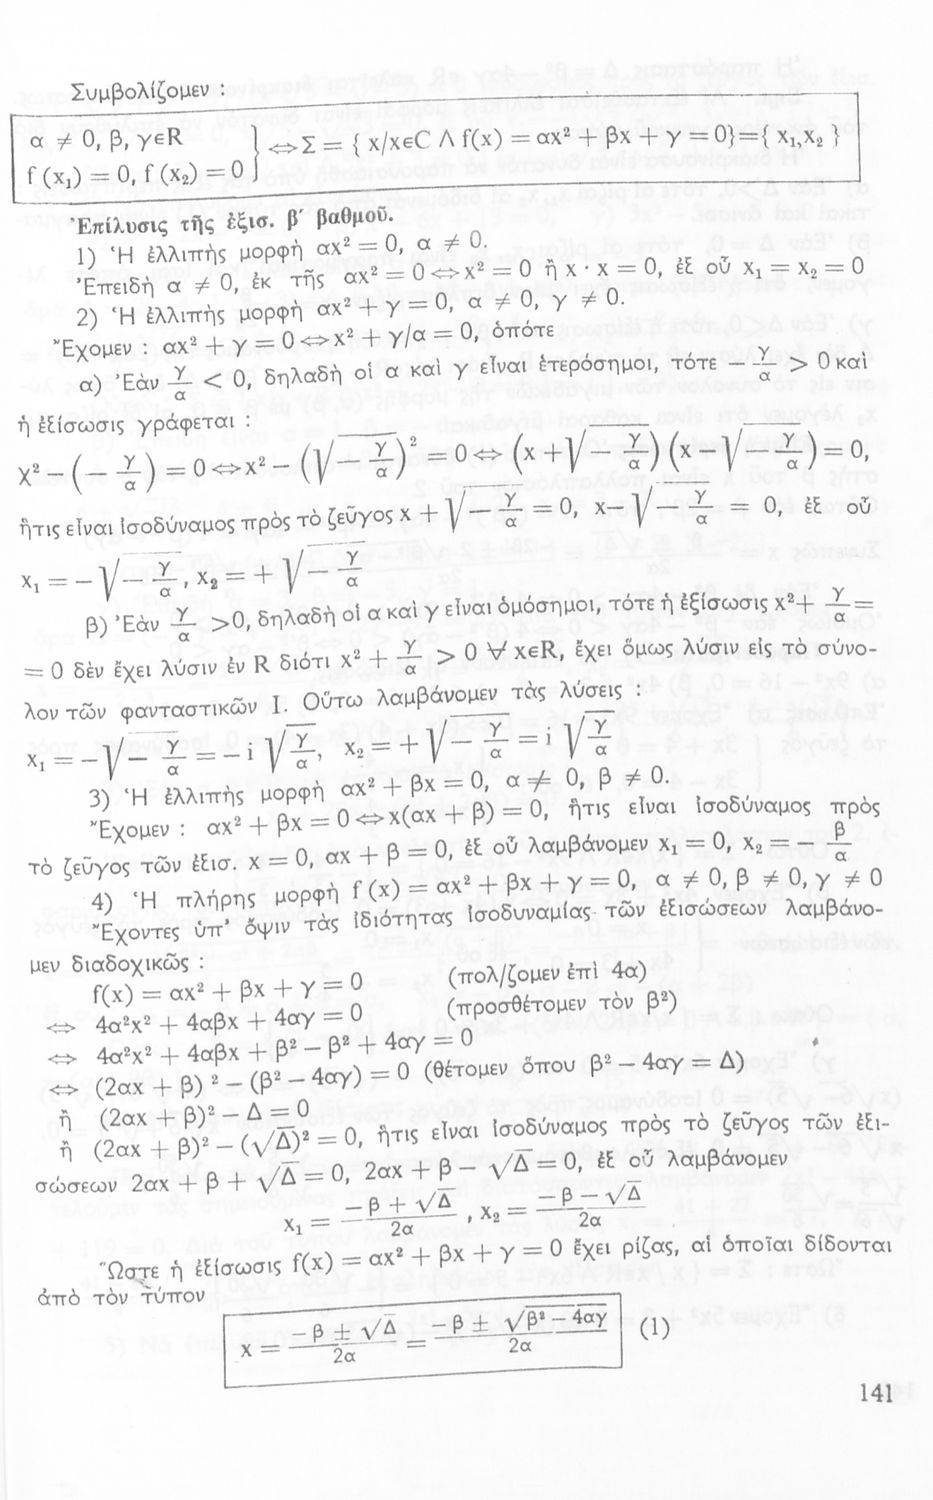 Συμβολίζομεν :
α ≠ 0, β, γεR
f (x₁) = 0, f (x₂) = 0 } ⇔ Σ = { x/xεC Λ f(x) = αx² + βx + γ = 0}={ x₁,x₂ }
Ἐπίλυσις τῆς ἐξισ. β΄ βαθμοῦ.
1) Ἡ ἐλλιπὴς μορφὴ αx² = 0, α ≠ 0.
Ἐπειδὴ α ≠ 0, ἐκ τῆς αx² = 0 ⇔ x² = 0 ἢ x · x = 0, ἐξ οὗ x₁ = x₂ = 0
2) Ἡ ἐλλιπὴς μορφὴ αx² + γ = 0, α ≠ 0, γ ≠ 0.
Ἔχομεν : αx² + γ = 0 ⇔ x² + γ/α = 0, ὁπότε
α) Ἐὰν γ/α < 0, δηλαδὴ οἱ α καὶ γ εἶναι ἑτερόσημοι, τότε − γ/α > 0 καὶ
ἡ ἐξίσωσις γράφεται :
χ² − ( − γ/α ) = 0 ⇔ x² − (√(− γ/α))² = 0 ⇔ (x + √(− γ/α)) (x − √(− γ/α)) = 0,
ἥτις εἶναι ἰσοδύναμος πρὸς τὸ ζεῦγος x + √(− γ/α) = 0, x − √(− γ/α) = 0, ἐξ οὗ
x₁ = − √(− γ/α) , x₂ = + √(− γ/α)
β) Ἐὰν γ/α >0, δηλαδὴ οἱ α καὶ γ εἶναι ὁμόσημοι, τότε ἡ ἐξίσωσις x² + γ/α =
= 0 δὲν ἔχει λύσιν ἐν R διότι x² + γ/α > 0 ∀ xεR, ἔχει ὅμως λύσιν εἰς τὸ σύνο-
λον τῶν φανταστικῶν I. Οὕτω λαμβάνομεν τὰς λύσεις :
x₁ = − √(− γ/α) = − i √(γ/α), x₂ = + √(− γ/α) = i √(γ/α)
3) Ἡ ἐλλιπὴς μορφὴ αx² + βx = 0, α ≠ 0, β ≠ 0.
Ἔχομεν : αx² + βx = 0 ⇔ x(αx + β) = 0, ἥτις εἶναι ἰσοδύναμος πρὸς
τὸ ζεῦγος τῶν ἐξισ. x = 0, αx + β = 0, ἐξ οὗ λαμβάνομεν x₁ = 0, x₂ = − β/α
4) Ἡ πλήρης μορφὴ f (x) = αx² + βx + γ = 0, α ≠ 0, β ≠ 0, γ ≠ 0
Ἔχοντες ὑπ' ὄψιν τὰς ἰδιότητας ἰσοδυναμίας τῶν ἐξισώσεων λαμβάνο-
μεν διαδοχικῶς :
f(x) = αx² + βx + γ = 0 (πολ/ζομεν ἐπὶ 4α)
⇔ 4α²x² + 4αβx + 4αγ = 0 (προσθέτομεν τὸν β²)
⇔ 4α²x² + 4αβx + β² − β² + 4αγ = 0
⇔ (2αx + β) ² − (β² − 4αγ) = 0 (θέτομεν ὅπου β² − 4αγ = Δ)
ἢ (2αx + β)² − Δ = 0
ἢ (2αx + β)² − (√Δ)² = 0, ἥτις εἶναι ἰσοδύναμος πρὸς τὸ ζεῦγος τῶν ἐξι-
σώσεων 2αx + β + √Δ = 0, 2αx + β − √Δ = 0, ἐξ οὗ λαμβάνομεν
x₁ = (− β + √Δ)/2α , x₂ = (− β − √Δ)/2α
Ὥστε ἡ ἐξίσωσις f(x) = αx² + βx + γ = 0 ἔχει ρίζας, αἱ ὁποῖαι δίδονται
ἀπὸ τὸν τύπον
x = (− β ± √Δ)/2α = (− β ± √(β² − 4αγ))/2α (1)
141